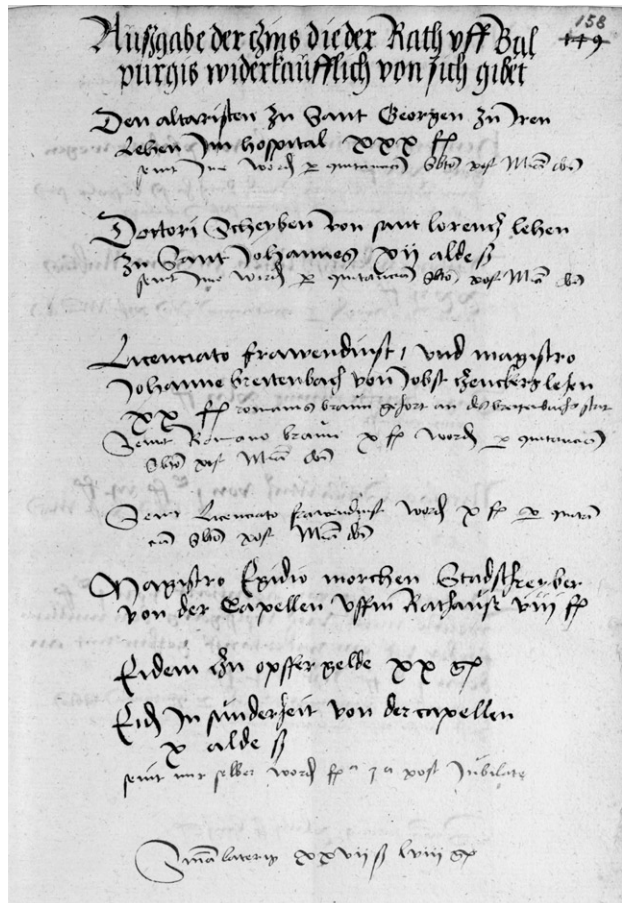 158
149
Außgabe der czins die der Rath uff Wal
purgis widerkaufflich von sich gibet
Den altaristen zu Sant Georgen zu Iren
Lehen Im hospital xxx fl
seint Ine word p quitancia post
Doctori Scheyben von sant lorencz lehen
zu Sant Johannes xii alde ß
seint Ine word p quitancia post
Licenciato frawendinst, und magistro
Johanne breitenbach von Jobst lehen
xx fl romanus braun gehort an des breitenbachs stat
Seint Romano braun x fl word p quitancia
post
Seint Licenciato frawendinst word x fl p
post
Magistro Egidio morchen Stadschreyber
von der Capellen uffm Rathause viii fl
Eidem zu opffer gelde xx gr
In sunderheit von der capellen
x alde ß
seint mir selber word post Jubilate
lateris xxvii ß lviii gr